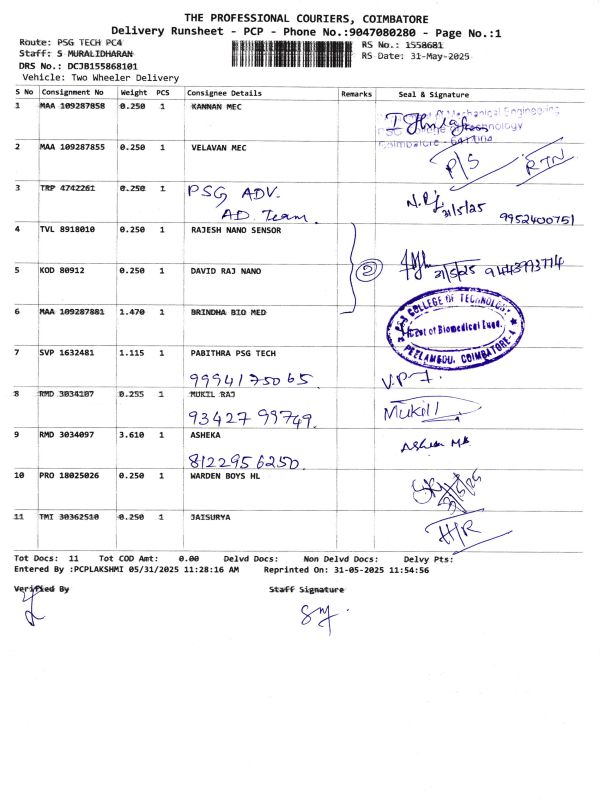 THE PROFESSIONAL COURIERS, COIMBATORE
Delivery Runsheet - PCP - Phone No.:9047080280 - Page No.:1
Route: PSG TECH PC4
RS No.: 1558681
Staff: S MURALIDHARAN
RS Date: 31-May-2025
DRS No.: DCJB155868101
Vehicle: Two Wheeler Delivery
S No Consignment No Weight PCS Consignee Details Remarks Seal & Signature
1 MAA 109287858 0.250 1 KANNAN MEC
of Mechanical Engineering
PSG College of Technology
Coimbatore - 641 004
2 MAA 109287855 0.250 1 VELAVAN MEC
P/S RTN
3 TRP 4742261 0.250 1 PSG ADV.
AD. Team.
31/5/25 9952400751
4 TVL 8918010 0.250 1 RAJESH NANO SENSOR
5 KOD 80912 0.250 1 DAVID RAJ NANO
② 31/5/25
6 MAA 109287881 1.470 1 BRINDHA BIO MED
COLLEGE OF TECHNOLOGY
Dept of Biomedical Engg.
PEELAMEDU, COIMBATORE-4
7 SVP 1632481 1.115 1 PABITHRA PSG TECH
9994175065. V.P.
8 RMD 3034107 0.255 1 MUKIL RAJ
93427 99749. Mukil
9 RMD 3034097 3.610 1 ASHEKA
8122956250.
10 PRO 18025026 0.250 1 WARDEN BOYS HL
31/5/25
11 TMI 30362510 0.250 1 JAISURYA
H/R
Tot Docs: 11 Tot COD Amt: 0.00 Delvd Docs: Non Delvd Docs: Delvy Pts:
Entered By :PCPLAKSHMI 05/31/2025 11:28:16 AM Reprinted On: 31-05-2025 11:54:56
Verified By Staff Signature